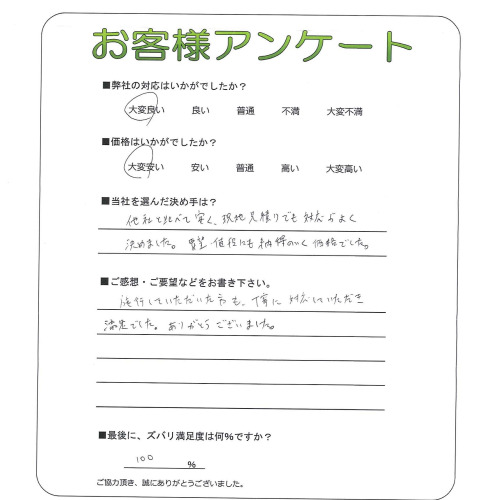 お客様アンケート
■弊社の対応はいかがでしたか？
大変良い 良い 普通 不満 大変不満
■価格はいかがでしたか？
大変安い 安い 普通 高い 大変高い
■当社を選んだ決め手は？
他社と比べて安く、現地見積りでも対応がよく
決めました。買い値段にも納得のいく価格でした。
■ご感想・ご要望などをお書き下さい。
施行していただいた方も、丁寧に対応していただき
満足でした。ありがとうございました。
■最後に、ズバリ満足度は何%ですか？
100 %
ご協力頂き、誠にありがとうございました。